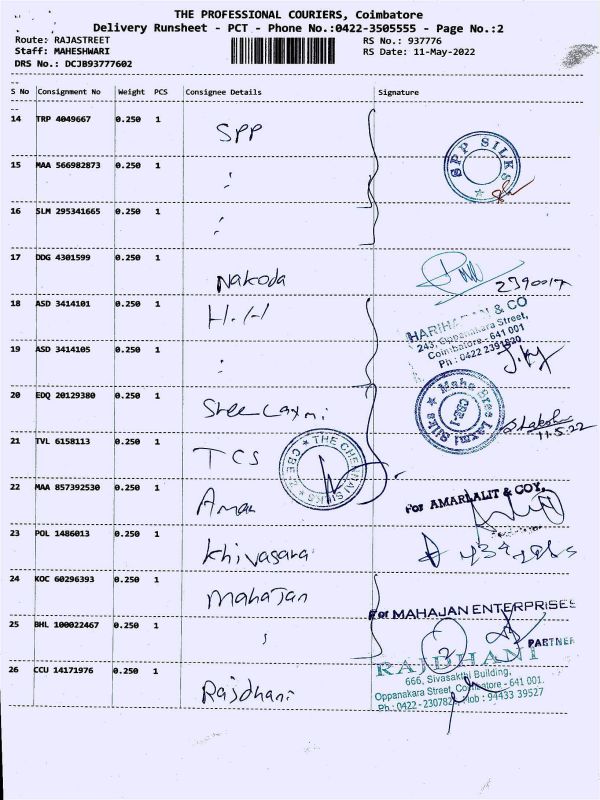 THE PROFESSIONAL COURIERS, Coimbatore
Delivery Runsheet - PCT - Phone No.:0422-3505555 - Page No.:2
Route: RAJASTREET
RS No.: 937776
Staff: MAHESHWARI
RS Date: 11-May-2022
DRS No.: DCJB93777602
S No Consignment No Weight PCS Consignee Details Signature
14 TRP 4049667 0.250 1
SPP
SPP SILKS
15 MAA 566982873 0.250 1
16 SLM 295341665 0.250 1
17 DDG 4301599 0.250 1
Nakoda
18 ASD 3414101 0.250 1
H.H
HARIHARAN & CO
243, Oppanakara Street,
Coimbatore - 641 001
Ph : 0422 2391820
19 ASD 3414105 0.250 1
20 EDQ 20129380 0.250 1
Sree Laxmi
Maha Sree Laxmi Silks
CBE-1
11.5.22
21 TVL 6158113 0.250 1
TCS
THE CHENNAI SILKS
CBE
22 MAA 857392530 0.250 1
Amar
For AMARLALIT & COY.
23 POL 1486013 0.250 1
Khivasara
24 KOC 60296393 0.250 1
Mahajan
For MAHAJAN ENTERPRISES
25 BHL 100022467 0.250 1
PARTNER
26 CCU 14171976 0.250 1
Rajdhani
RAJDHANI
666, Sivasakthi Building,
Oppanakara Street, Coimbatore - 641 001.
Ph : 0422 - 230782 Mob : 94433 39527